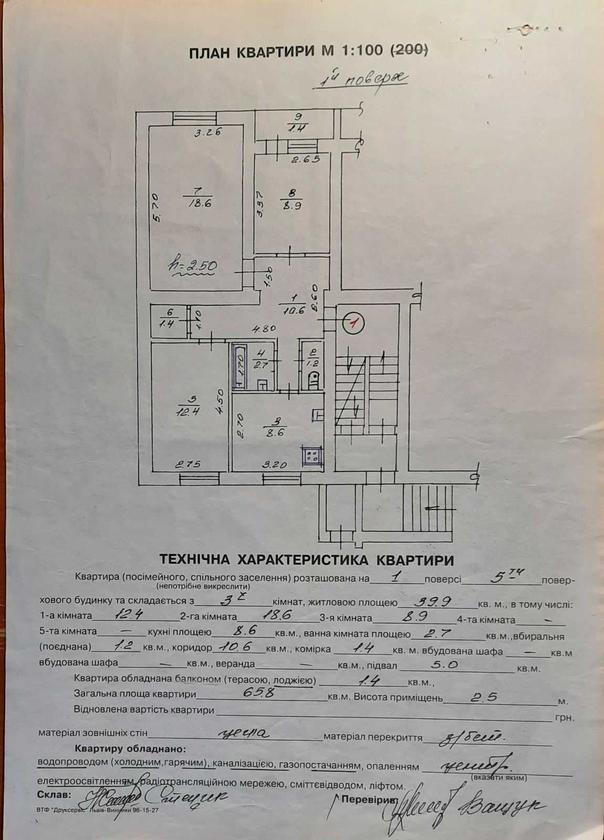 ПЛАН КВАРТИРИ М 1:100 (200)
1й поверх
9
1.4
3.26
2.65
5.70
7
18.6
3.37
8
8.9
h=2.50
1.50
1
10.6
2.60
6
1.4
1.10
4.80
1
4
2.7
1.70
2
1.2
5
12.4
4.50
2.70
3
8.6
2.75
3.20
ТЕХНІЧНА ХАРАКТЕРИСТИКА КВАРТИРИ
Квартира (посімейного, спільного заселення) розташована на 1 поверсі 5ти повер-
(непотрібне викреслити)
хового будинку та складається з 3х кімнат, житловою площею 39.9 кв. м., в тому числі:
1-а кімната 12.4 2-га кімната 18.6 3-я кімната 8.9 4-та кімната –
5-та кімната – кухні площею 8.6 кв.м., ванна кімната площею 2.7 кв.м.,вбиральня
(поєднана) 1.2 кв.м., коридор 10.6 кв.м., комірка 1.4 кв. м. вбудована шафа – кв.м
вбудована шафа – кв.м., веранда – кв.м., підвал 5.0 кв.м.
Квартира обладнана балконом (терасою, лоджією) 1.4 кв.м.,
Загальна площа квартири 65.8 кв.м. Висота приміщень 2.5 м.
Відновлена вартість квартири грн.
матеріал зовнішніх стін цегла матеріал перекриття з/бет.
Квартиру обладнано:
водопроводом (холодним,гарячим), каналізацією, газопостачанням, опаленням центр.
(вказати яким)
електроосвітленням, радіотрансляційною мережею, сміттєвідводом, ліфтом.
Склав: Перевірив:
ВТФ "Друксервіс" Львів-Винники 96-15-27